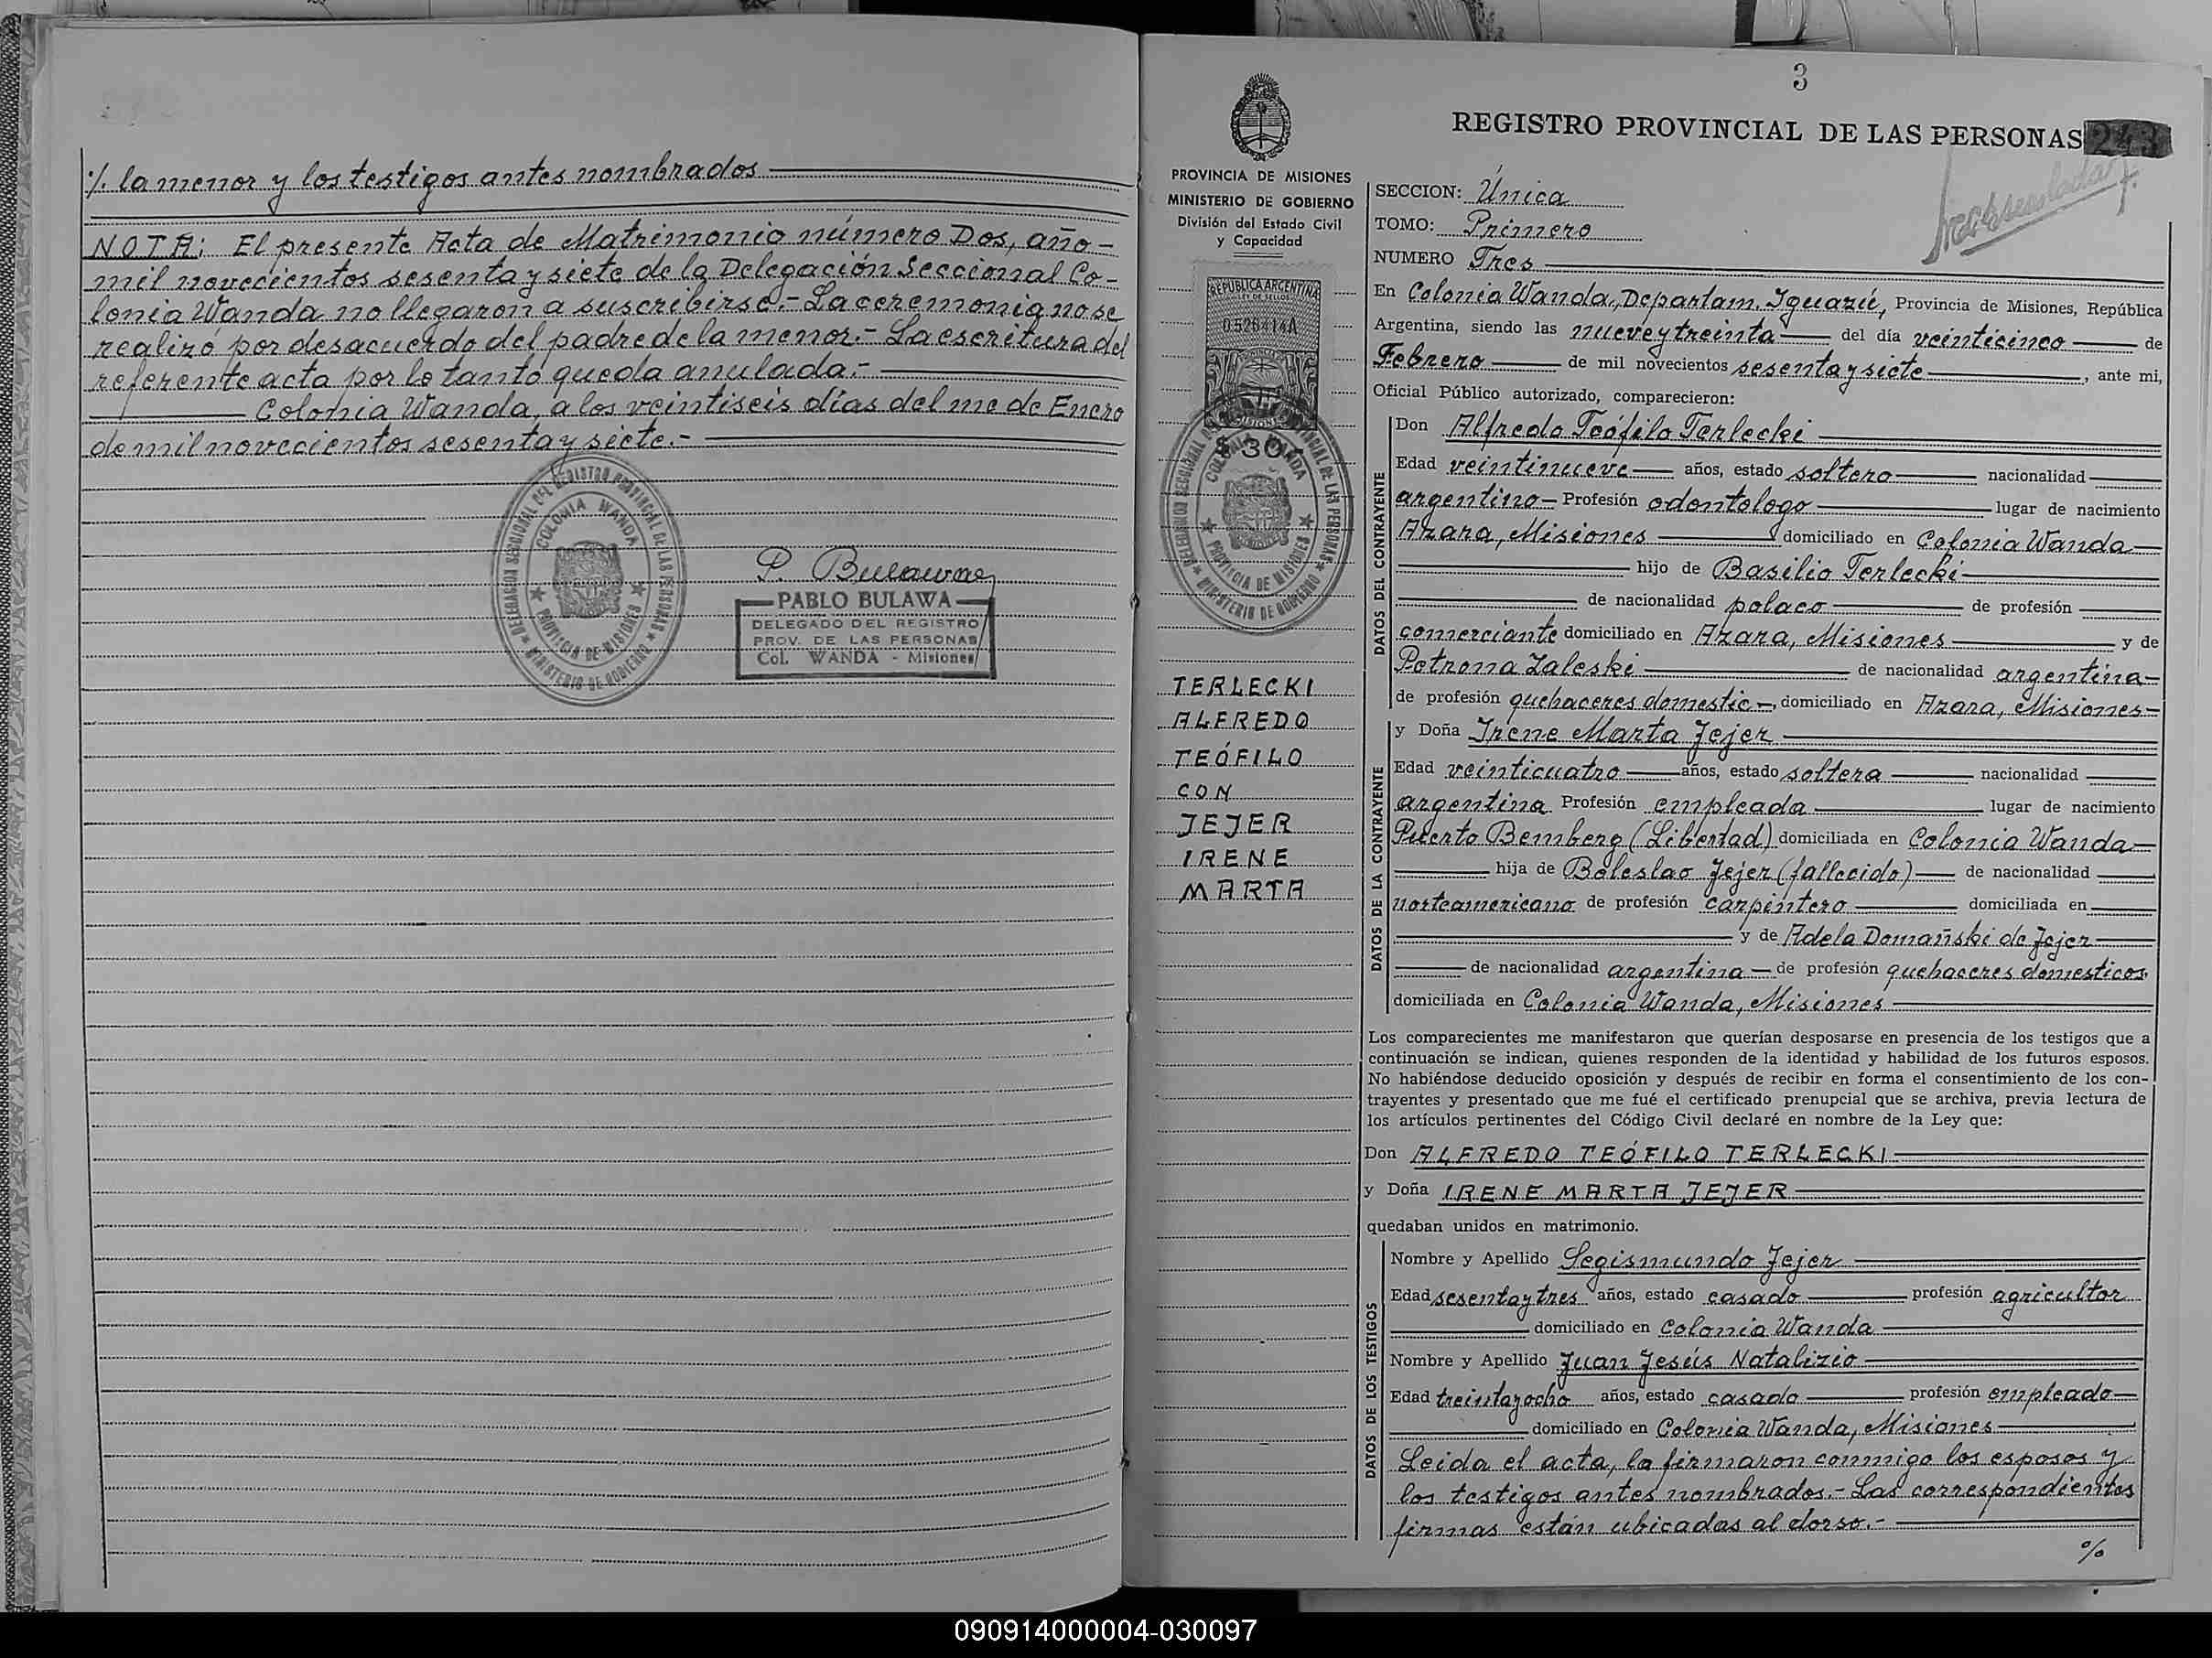 ./. la menor y los testigos antes nombrados
NOTA: El presente Acta de Matrimonio número Dos, año-
mil novecientos sesenta y siete de la Delegación Seccional Co-
lonia Wanda no llegaron a suscribirse.- La ceremonia no se
realizó por desacuerdo del padre de la menor.- La escritura del
referente acta por lo tanto queda anulada.-
Colonia Wanda, a los veintiseis días del me de Enero
de mil novecientos sesenta y siete.-
DELEGACION SECCIONAL DEL REGISTRO PROVINCIAL DE LAS PERSONAS
COLONIA WANDA
PROVINCIA DE MISIONES
MINISTERIO DE GOBIERNO
P. Bulawa
PABLO BULAWA
DELEGADO DEL REGISTRO
PROV. DE LAS PERSONAS
Col. WANDA - Misiones
3
REGISTRO PROVINCIAL DE LAS PERSONAS 243
PROVINCIA DE MISIONES
MINISTERIO DE GOBIERNO
División del Estado Civil
y Capacidad
REPUBLICA ARGENTINA
LEY DE SELLOS
0.526414A
$ 30
DELEGACION SECCIONAL DEL REGISTRO PROVINCIAL DE LAS PERSONAS
COLONIA WANDA
PROVINCIA DE MISIONES
MINISTERIO DE GOBIERNO
TERLECKI
ALFREDO
TEÓFILO
CON
JEJER
IRENE
MARTA
SECCION: Única
TOMO: Primero
NUMERO Tres
En Colonia Wanda, Departam. Iguazú, Provincia de Misiones, República
Argentina, siendo las nueve y treinta del día veinticinco de
Febrero de mil novecientos sesenta y siete, ante mi,
Oficial Público autorizado, comparecieron:
DATOS DEL CONTRAYENTE
Don Alfredo Teófilo Terlecki
Edad veintinueve años, estado soltero nacionalidad
argentino- Profesión odontologo lugar de nacimiento
Azara, Misiones domiciliado en Colonia Wanda
hijo de Basilio Terlecki
de nacionalidad polaco de profesión
comerciante domiciliado en Azara, Misiones y de
Petrona Zaleski de nacionalidad argentina-
de profesión quehaceres domestic-, domiciliado en Azara, Misiones-
DATOS DE LA CONTRAYENTE
y Doña Irene Marta Jejer
Edad veinticuatro años, estado soltera nacionalidad
argentina Profesión empleada lugar de nacimiento
Puerto Bemberg (Libertad) domiciliada en Colonia Wanda
hija de Boleslao Jejer (fallecido) de nacionalidad
norteamericano de profesión carpintero domiciliada en
y de Adela Domañski de Jejer
de nacionalidad argentina de profesión quehaceres domesticos
domiciliada en Colonia Wanda, Misiones
Los comparecientes me manifestaron que querían desposarse en presencia de los testigos que a
continuación se indican, quienes responden de la identidad y habilidad de los futuros esposos.
No habiéndose deducido oposición y después de recibir en forma el consentimiento de los con-
trayentes y presentado que me fué el certificado prenupcial que se archiva, previa lectura de
los artículos pertinentes del Código Civil declaré en nombre de la Ley que:
Don ALFREDO TEÓFILO TERLECKI
y Doña IRENE MARTA JEJER
quedaban unidos en matrimonio.
DATOS DE LOS TESTIGOS
Nombre y Apellido Segismundo Jejer
Edad sesenta y tres años, estado casado profesión agricultor
domiciliado en Colonia Wanda
Nombre y Apellido Juan Jesús Natalizio
Edad treinta y ocho años, estado casado profesión empleado
domiciliado en Colonia Wanda, Misiones
Leida el acta, la firmaron conmigo los esposos y
los testigos antes nombrados.- Las correspondientes
firmas están ubicadas al dorso.-
%
090914000004-030097